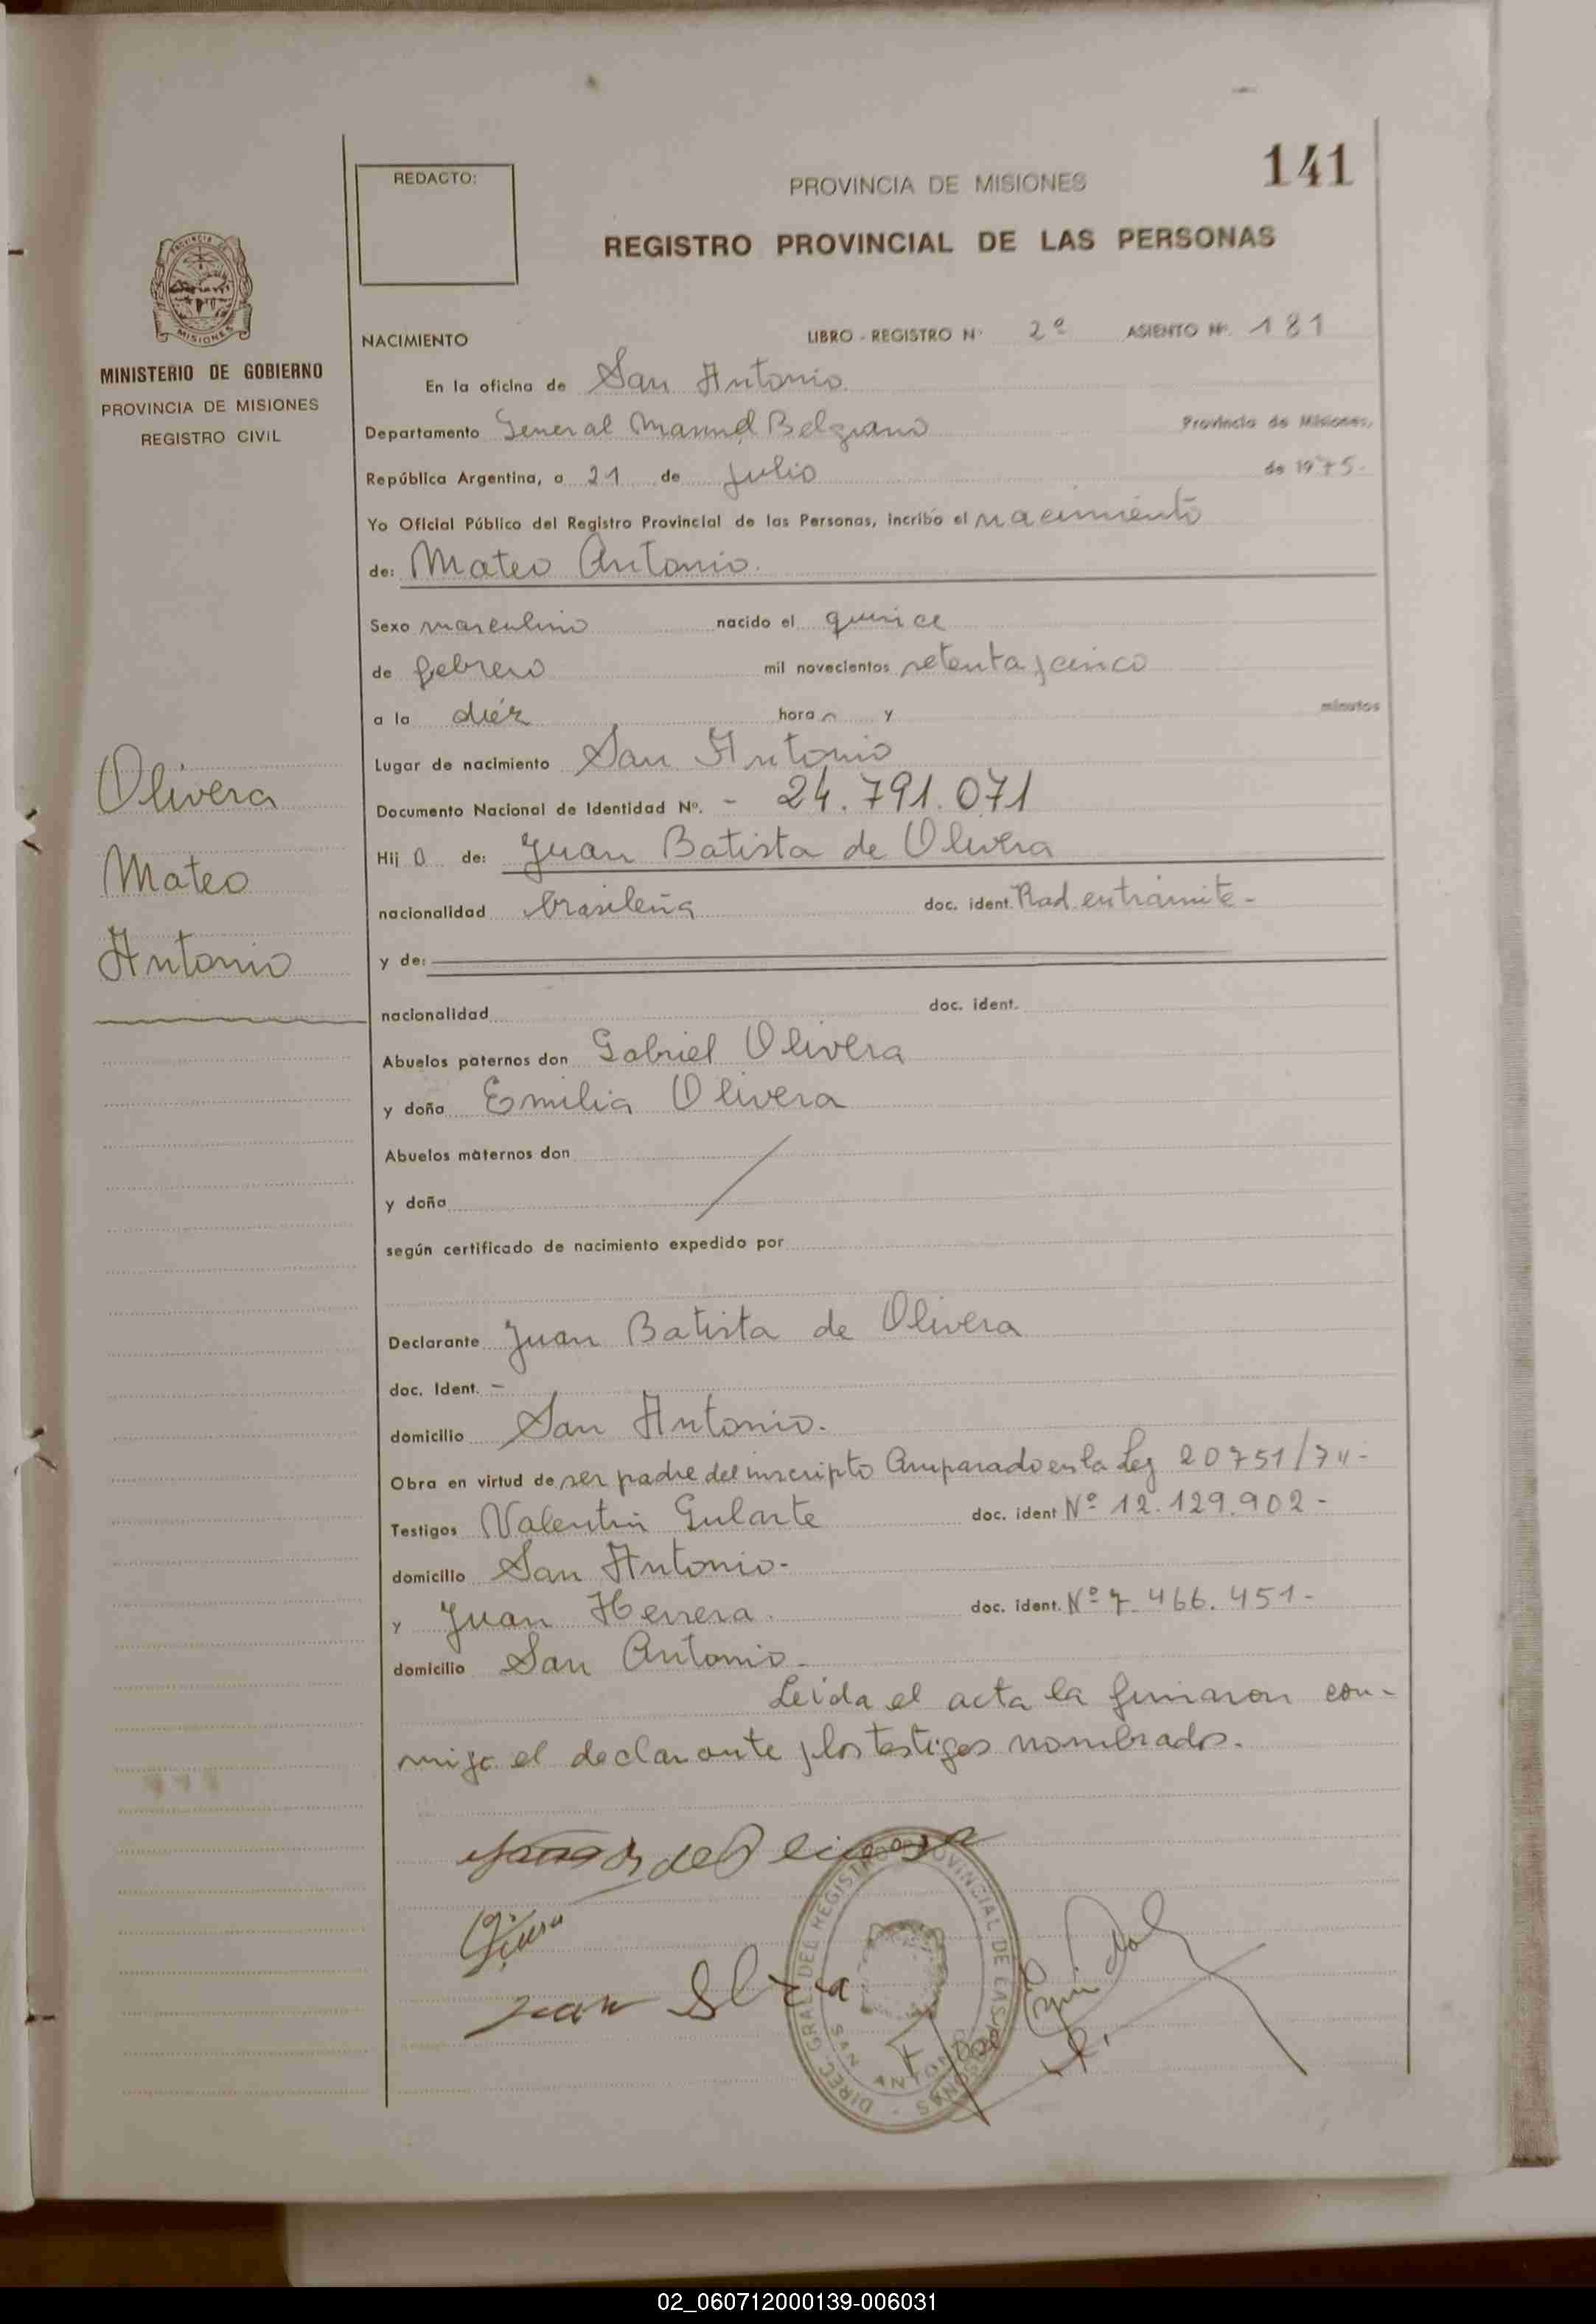 141
REDACTO:
PROVINCIA DE MISIONES
REGISTRO PROVINCIAL DE LAS PERSONAS
MISIONES
MINISTERIO DE GOBIERNO
PROVINCIA DE MISIONES
REGISTRO CIVIL
NACIMIENTO LIBRO - REGISTRO Nº 2º ASIENTO Nº. 181
En la oficina de San Antonio
Departamento General Manuel Belgrano Provincia de Misiones,
República Argentina, a 21 de julio de 1975.-
Yo Oficial Público del Registro Provincial de las Personas, incribo el nacimiento
de: Mateo Antonio.
Sexo masculino nacido el quince
de febrero mil novecientos setenta y cinco
a la diéz horas y minutos
Lugar de nacimiento San Antonio
Documento Nacional de Identidad Nº. - 24.791.071
Hij o de: Juan Batista de Olivera
nacionalidad brasileña doc. ident. Rad. en trámite -
y de:
nacionalidad doc. ident.
Abuelos paternos don Gabriel Olivera
y doña Emilia Olivera
Abuelos maternos don
y doña
según certificado de nacimiento expedido por
Declarante Juan Batista de Olivera
doc. Ident. -
domicilio San Antonio.
Obra en virtud de ser padre del inscripto Amparado en la Ley 20751/74-
Testigos Valentin Gularte doc. ident Nº 12.129.902-
domicilio San Antonio-
y Juan Herrera. doc. ident. Nº 7.466.451-
domicilio San Antonio-
Leída el acta la firmaron con-
migo el declarante y los testigos nombrados.
Olivera
Mateo
Antonio
DIREC. GRAL. DEL REGISTRO PROVINCIAL DE LAS PERSONAS
SAN ANTONIO
02_060712000139-006031